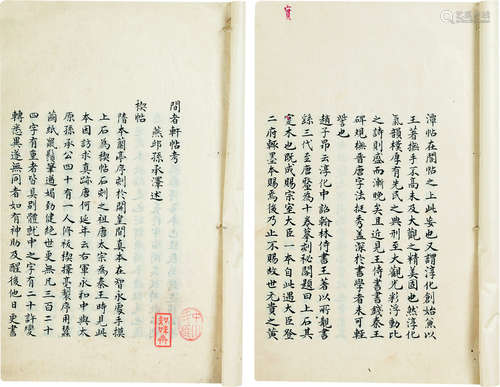 閒者軒帖考
燕邱孫承澤述
禊帖
隋本蘭亭序刻於開皇間真本在智永處手摸
上石為禊帖石刻之祖唐太宗為秦王時見此
本因訪求真跡何延年云右軍永和中與太
原孫承公四十有一人修祓禊擇毫製序用蠶
繭紙鼠鬚筆遒媚勁健絕世更無凡三百二十
四字有重者皆具別體就中之字有二十許變
轉悉異遂無同者如有神助及醒後他日更書
潭帖在閣帖之上此妄也又謂淳化創始蕉以
王著撫手不高未及大觀之精美固也然淳化
氣韻樸厚有先民之典刑至大觀光彩浮動比
之詩則盛而漸晚矣且近見王侍書書錢秦王
碑規撫晉唐字法挺秀蓋深於書學者未可輕
訾也
趙子昂云淳化中詔翰林侍書王著以所覯書
錄三代至唐釐為十卷摹刻秘閣題曰上石其
寔木也既成賜宗室大臣一本自此遇大臣登
二府輒墨本賜焉後乃止不賜故世尤貴之黃